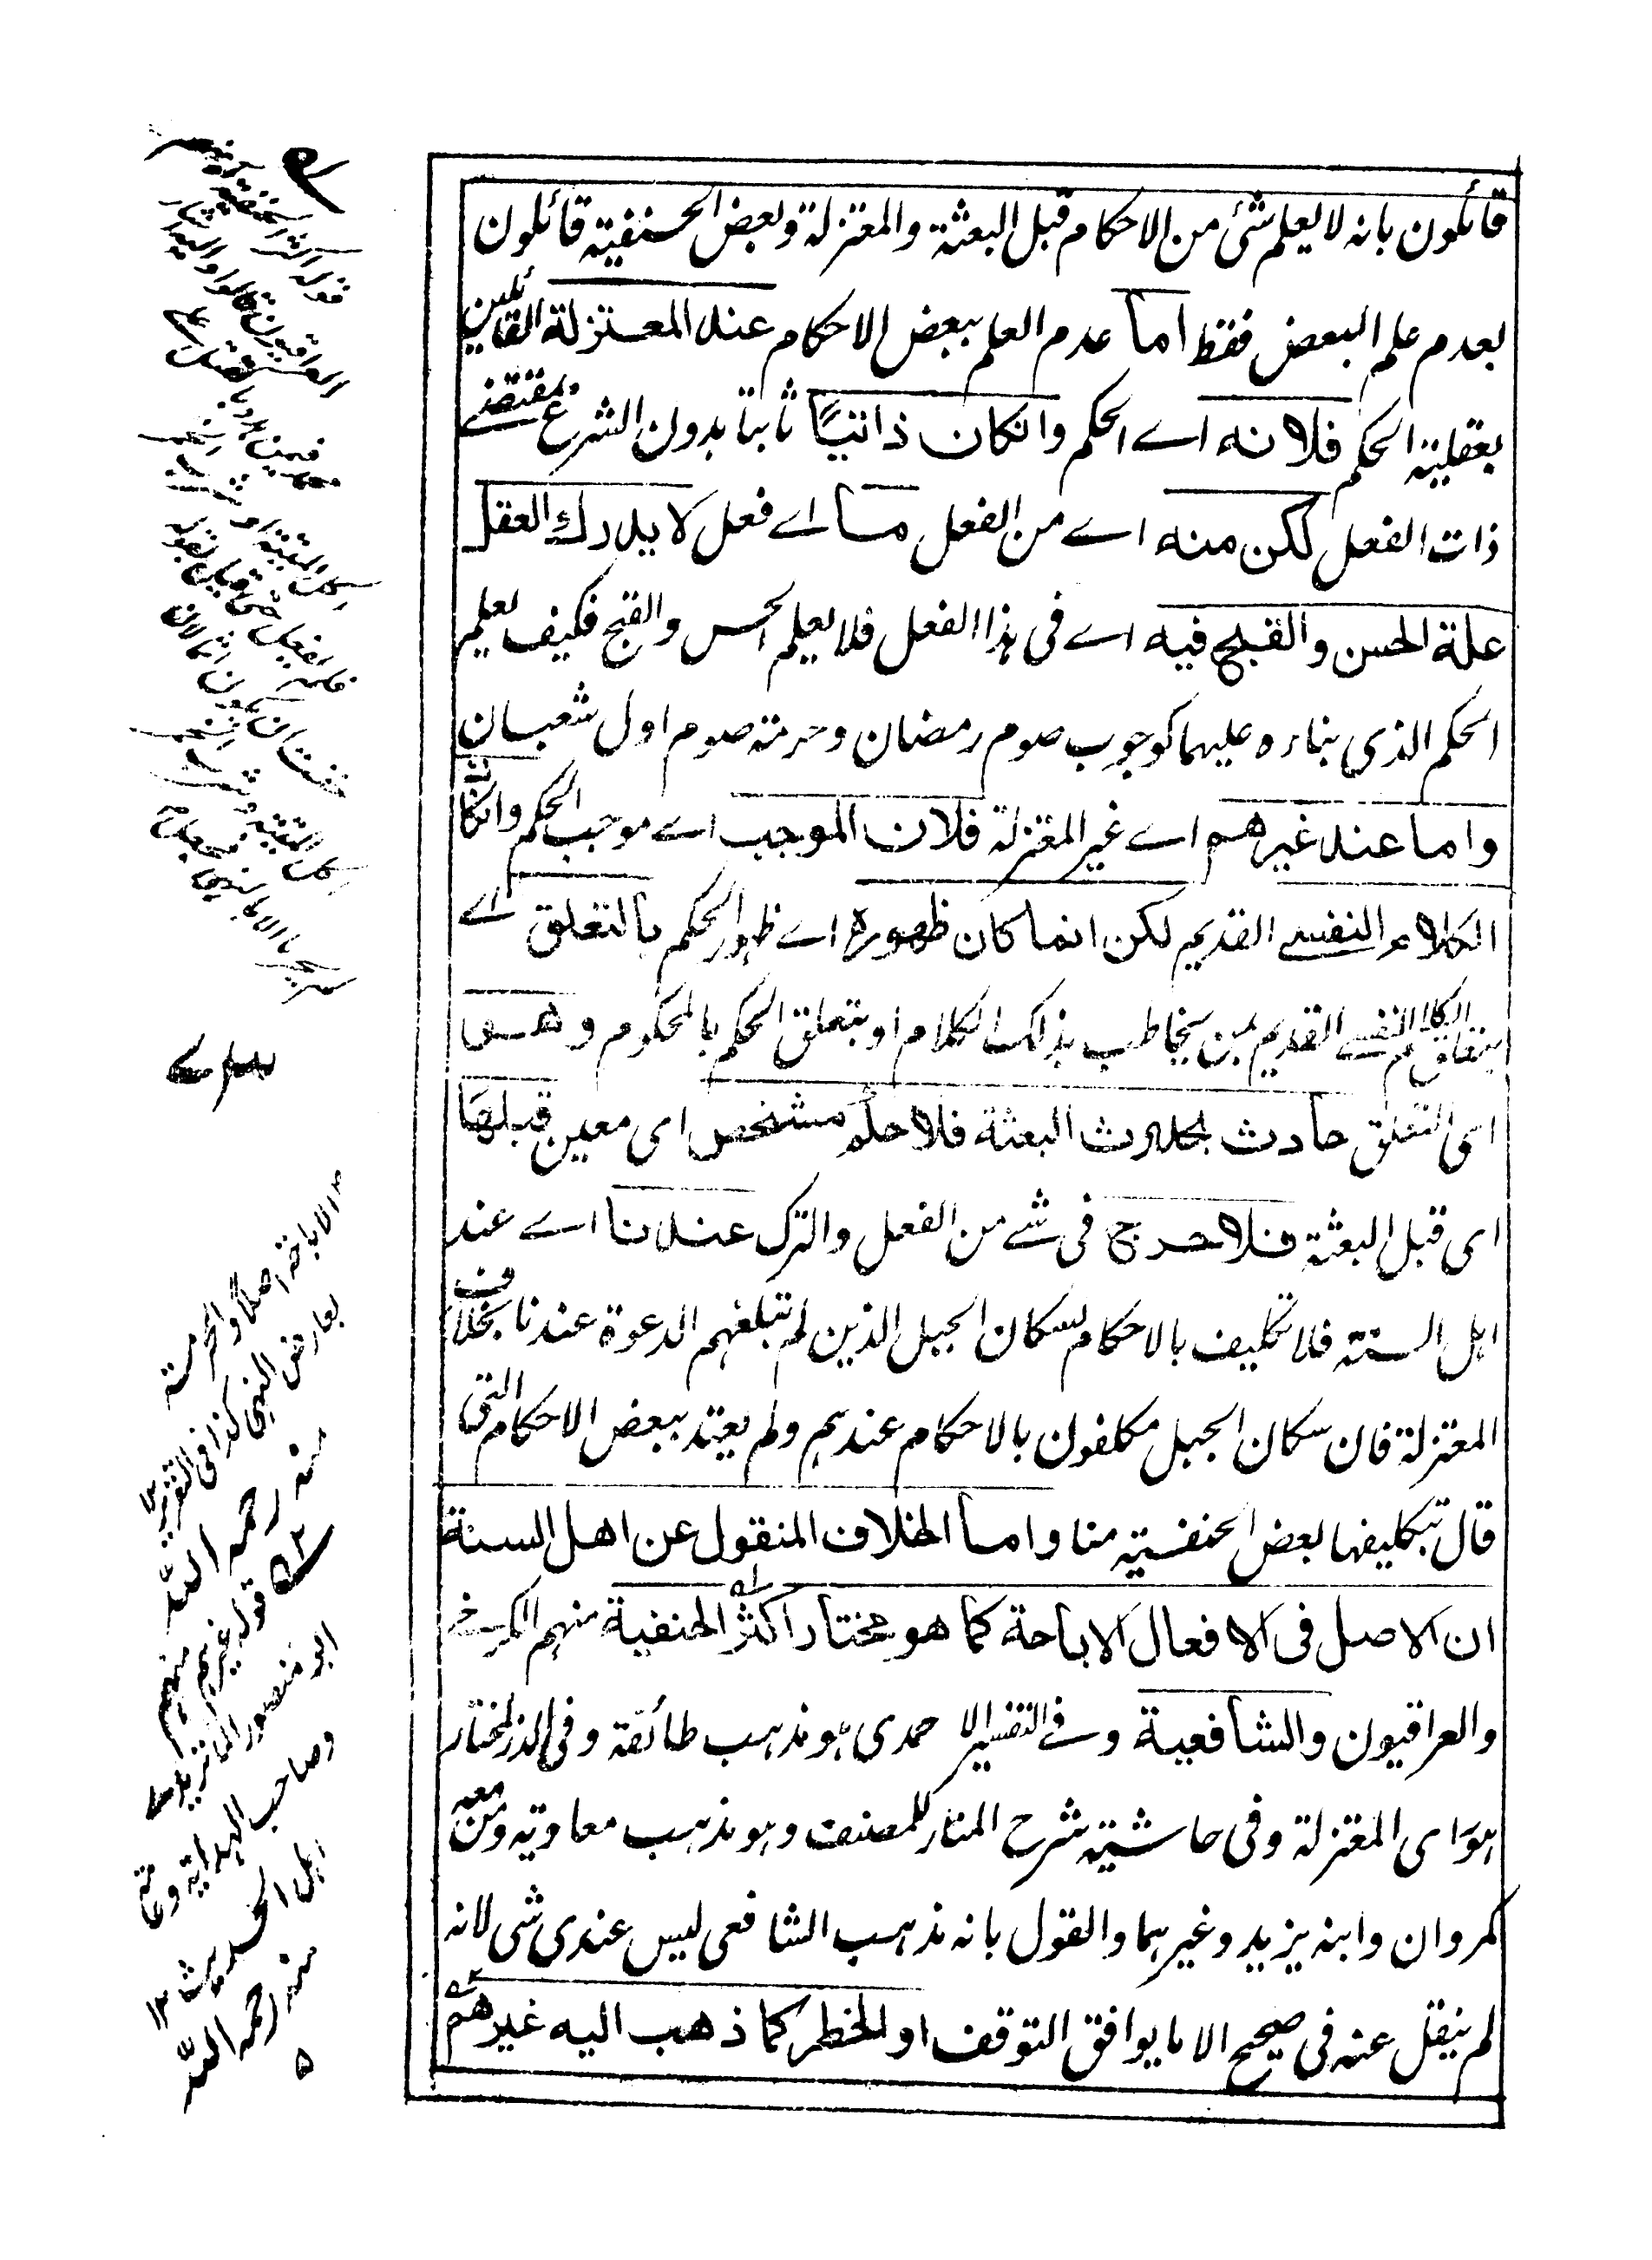 قائلون بانه لا يعلم شئ من الاحكام قبل البعثة والمعتزلة وبعض الحنفية قائلون
بعدم علم البعض فقط اما عدم العلم ببعض الاحكام عند المعتزلة القائلين
بعقلية الحكم فلانه اے الحكم وانكان ذاتيًا ثابتا بدون الشرع ومقتضے
ذات الفعل لكن منه اے من الفعل ما اے فعل لا يدرك العقل
علة الحسن والقبح فيه اے فى هذا الفعل فلا يعلم الحسن والقبح فكيف يعلم
الحكم الذى بناءه عليهما كوجوب صوم رمضان وحرمة صوم اول شعبان
واما عند غيرهم اے غير المعتزلة فلان الموجب اے موجب الحكم وانكان
الكلام النفسے القديم لكن انما كان ظهوره اے ظهور الحكم بالتعلق اے
بتعلق الكلام النفسے القديم بمن يخاطب بذلك الكلام او بتعلق الحكم بالمحكوم وهو
اى التعلق حادث بحدوث البعثة فلا حكم مشخص اى معين قبلها
اى قبل البعثة فلا حرج فى شے من الفعل والترك عندنا اے عند
اهل السنة فلا تكليف بالاحكام لسكان الجبل الذين لم تبلغهم الدعوة عندنا بخلاف
المعتزلة فان سكان الجبل مكلفون بالاحكام عندهم ولم يعتد ببعض الاحكام التى
قال بتكليفها بعض الحنفية منا واما الخلاف المنقول عن اهل السنة
ان الاصل فى الافعال الاباحة كما هو مختار اكثر الحنفية منهم الكرخے
والعراقيون والشافعية وفے التفسير الاحمدى هو مذهب طائفة وفى الدر المختار
هو راى المعتزلة وفى حاشية شرح المنار للمصنف وهو مذهب معاوية ومن معه
كمروان وابنه يزيد وغيرهما والقول بانه مذهب الشافعى ليس عندى شى لانه
لم ينقل عنه فى صحيح الا ما يوافق التوقف او الخطر كما ذهب اليه غيرهم
قوله اكثر الحنفية
العراقيون قالوا
الاباحة اصلا والحرمة
بعارض النهى كذا فى التقرير ١٢
منه رحمه الله
قوله غيرهم منهم
ابو منصور الماتريدے
وصاحب الهداية وعامة
اهل الحديث ١٢
منه رحمه الله